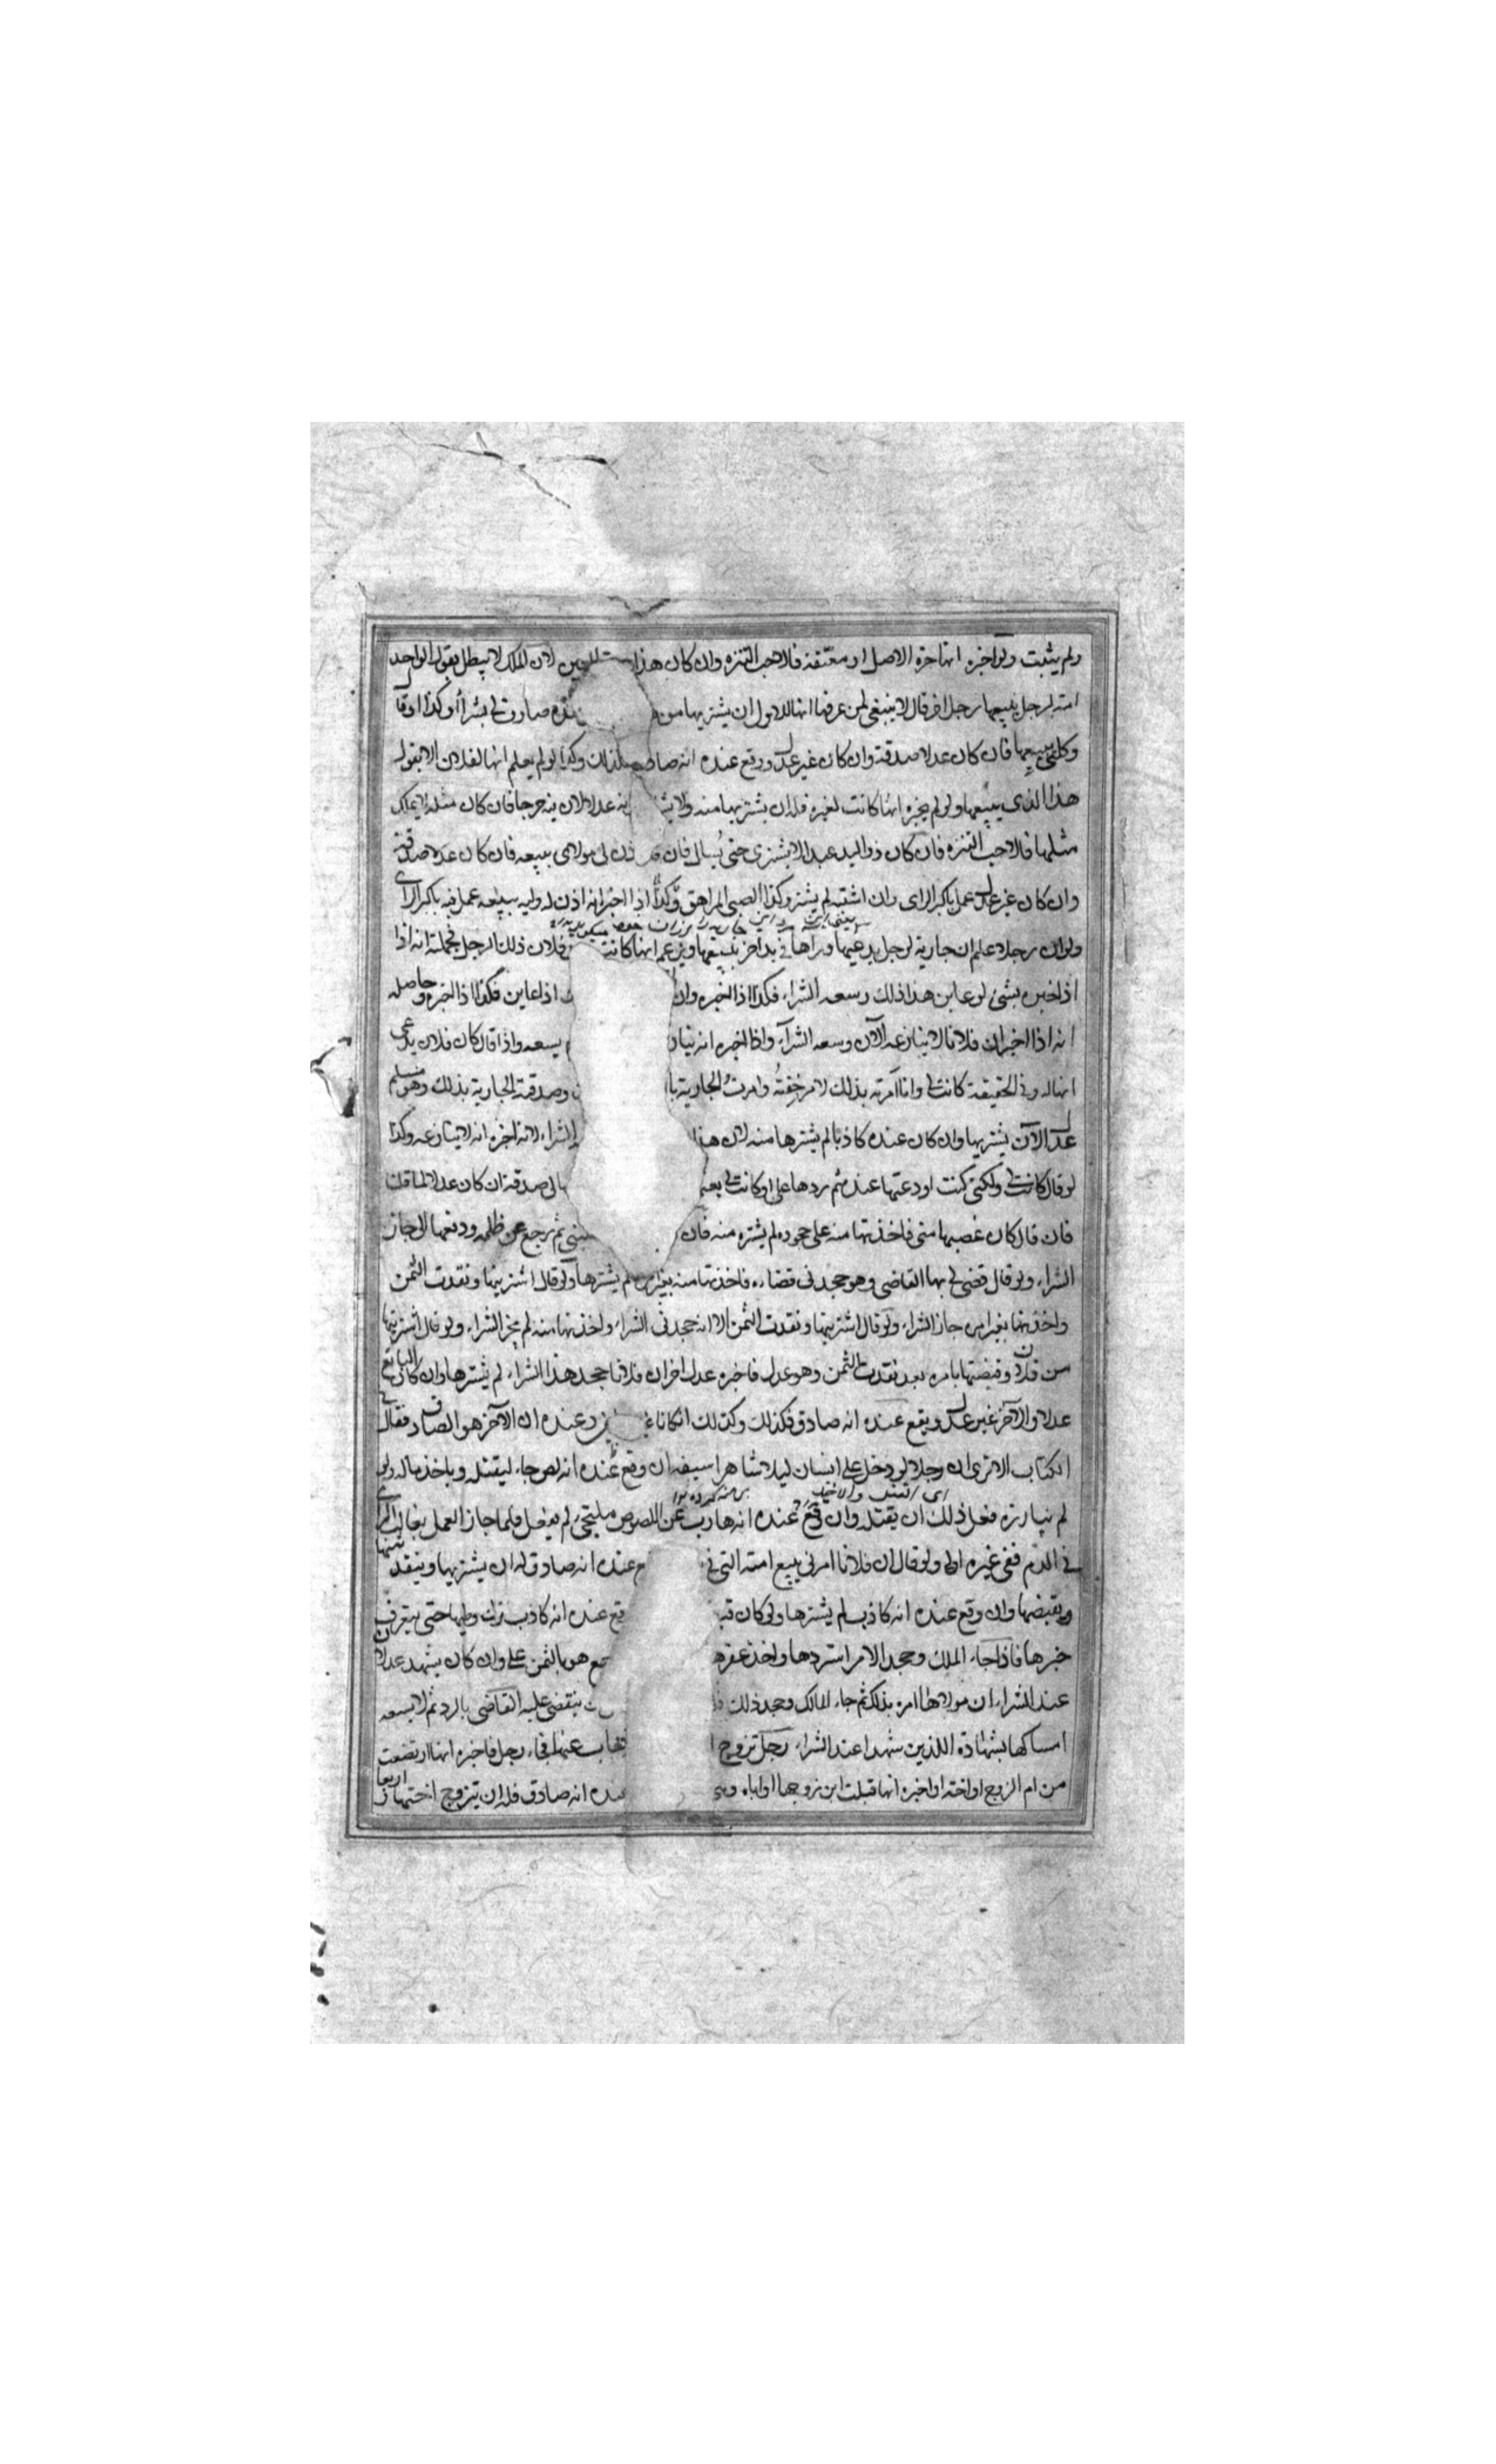 ولم يثبت ولو اخبره انها حرة الاصل او معتقة فلاحب التنزه وان كان هذا لان الملك لا يبطل بقول الواحد
امة لرجل يبيعها رجل اخر قال لا ينبغي لمن عرفنا انها للاول ان يشتريها من صارت لي بشراء او كذا او قا
وكلني ببيعها فان كان عدلا صدقه وان كان غير عدل ووقع عنده انه صادق فكذلك وكذا لو لم يعلم انها لفلان الا بقول
هذا الذي يبيعها ولو لم يخبره انها كانت لغيره فله ان يشتريها منه ولا عدلا لان ينه حرجا فان كان مثله لا يملك
مثلها فلاحب التنزه فان كان ذو اليد عبدا لا يشتري حتى يسال فان اذن لي مولاي ببيعه فان كان عدلا صدقه
وان كان غير عدل عمل باكبر الراي وان اشتبه لم يشتر وكذا الصبي المراهق وكذا اذا اخبر انه اذن له وليه ببيعه عمل فيه باكبر الراي
ولو ان رجلا علم ان جارية لرجل يدعيها ورآها في يد اخر يبيعها ويزعم انها كانت فلان ذلك الرجل فجملته انه اذا
اذا خبره بشئ لو عاين هذا ذلك وسعه الشراء فكذا اذا اخبره وان اذا عاين فكذا اذا اخبره وحاصله
انه اذا اخبر ان فلانا لا ينازعه الآن وسعه الشراء واذا اخبره انه ينازع يسعه واذا قال كان فلان يدعي
انها له وفي الحقيقة كانت لي وانا امرته بذلك لامر خفته وامرت الجارية با وصدقته الجارية بذلك وهو مسلم
عدل الآن يشتريها وان كان عنده كاذبا لم يشترها منه لان هذا الشراء لانه اخبره انه لا ينازعه وكذا
لو قال كانت لي ولكني كنت اودعتها عنده ثم ردها علي او كانت لي صدقه ان كان عدلا لما قلنا
فان قال كان غصبها مني فاخذتها منه على جحوده لم يشتره منه فان ثم رجع عن ظلمه ودفعها الي جاز
الشراء ولو قال قضى لي بها القاضي وهو جحد في قضاءه فاخذتها منه بغير امره لم يشترها ولو قال اشتريتها ونقدت الثمن
واخذتها بغير امره جاز الشراء ولو قال اشتريتها ونقدت الثمن الا انه جحدني الشراء واخذتها منه لم يجز الشراء ولو قال اشتريتها
من فلان وقبضتها بامره بعد نقدت الثمن وهو عدل فاخبره عدل اخر ان فلانا جحد هذا الشراء لم يشترها وان كان البايع
عدلا والآخر غير عدل ويقع عنده انه صادق فكذلك وكذلك ان كانا عنده ان الآخر هو الصادق فقال في
الكتاب الا ترى ان رجلا لو دخل على انسان ليلا شاهرا سيفه ان وقع عنده انه لص جاء ليقتله وياخذ ماله ولو
لم يبادره فعل ذلك ان يقتله وان وقع عنده انه هارب من اللصوص ملتجئ لم يفعل فلما جاز العمل بغالب الراي
في الدم ففي غيره اولى ولو قال ان فلانا امرني ببيع امته التي في عنده انه صادق له ان يشتريها وينقد ثمنها
ويقبضها وان وقع عنده انه كاذب لم يشترها ولو كان وقع عنده انه كاذب ترك وطيها حتى يتعرف
خبرها فاذا جاء الملك وجحد الامر استردها واخذ عقرها هو بالثمن على وان كان يشهد عدلان
عند الشراء ان مولاها امره بذلك ثم جاء المالك وجحد ذلك يقضي عليه القاضي بالرد ثم لا يسعه
امساكها بشهادة اللذين شهدا عند الشراء رجل تزوج فغاب عنها فجاء رجل فاخبره انها ارتضعت
من ام الزوج او اخته او اخبره انها قبلت ابن زوجها او اباه عنده انه صادق فله ان يتزوج اختها او اربعا